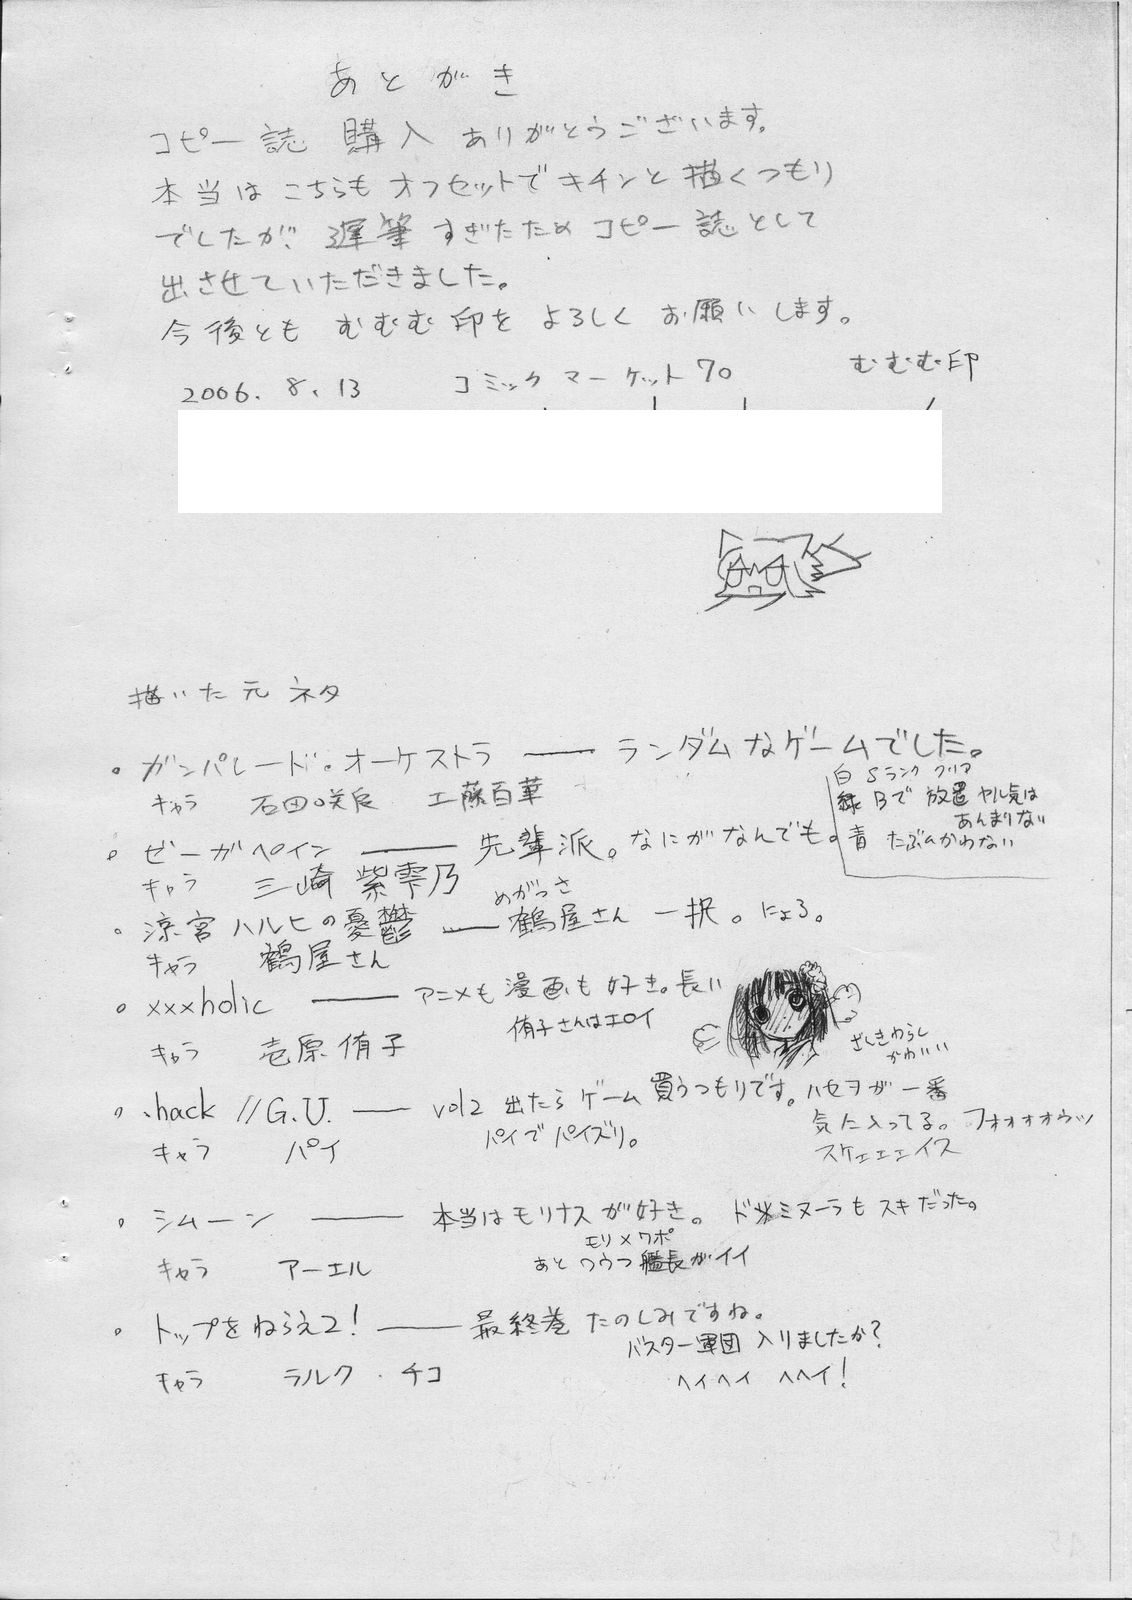 あとがき
コピー誌 購入 ありがとうございます。
本当は こちらも オフセットで キチンと 描くつもり
でしたが、遅筆 すぎたため コピー誌として
出させていただきました。
今後とも むむむ印を よろしく お願いします。
むむむ印
2006. 8. 13 コミックマーケット70
描いた元ネタ
・ガンパレード・オーケストラ ―― ランダムなゲームでした。
白 Sランク クリア
緑 Bで 放置 ヤル気は
あんまりない
青 たぶんかわない
キャラ 石田咲良 工藤百華
・ゼーガペイン ―― 先輩派。なにがなんでも。
キャラ 三崎 紫雫乃
めがっさ
・涼宮ハルヒの憂鬱 ―― 鶴屋さん 一択。にょろ。
キャラ 鶴屋さん
・xxxholic ―― アニメも 漫画も 好き。長い
侑子さんはエロイ
ざしきわらし
かわいい
キャラ 壱原侑子
・.hack //G.U. ―― vol2 出たら ゲーム 買うつもりです。ハセヲが 一番
気に入ってる。フォォォォゥッ
パイで パイズリ。
スケェェェイス
キャラ パイ
・シムーン ―― 本当は モリナスが好き。 ドミヌーラも スキだった。
モリ×ワポ
あと ワウフ 艦長がイイ
キャラ アーエル
・トップをねらえ2! ―― 最終巻 たのしみですね。
バスター軍団 入りましたか?
キャラ ラルク・チコ
ヘイヘイ ヘヘイ!